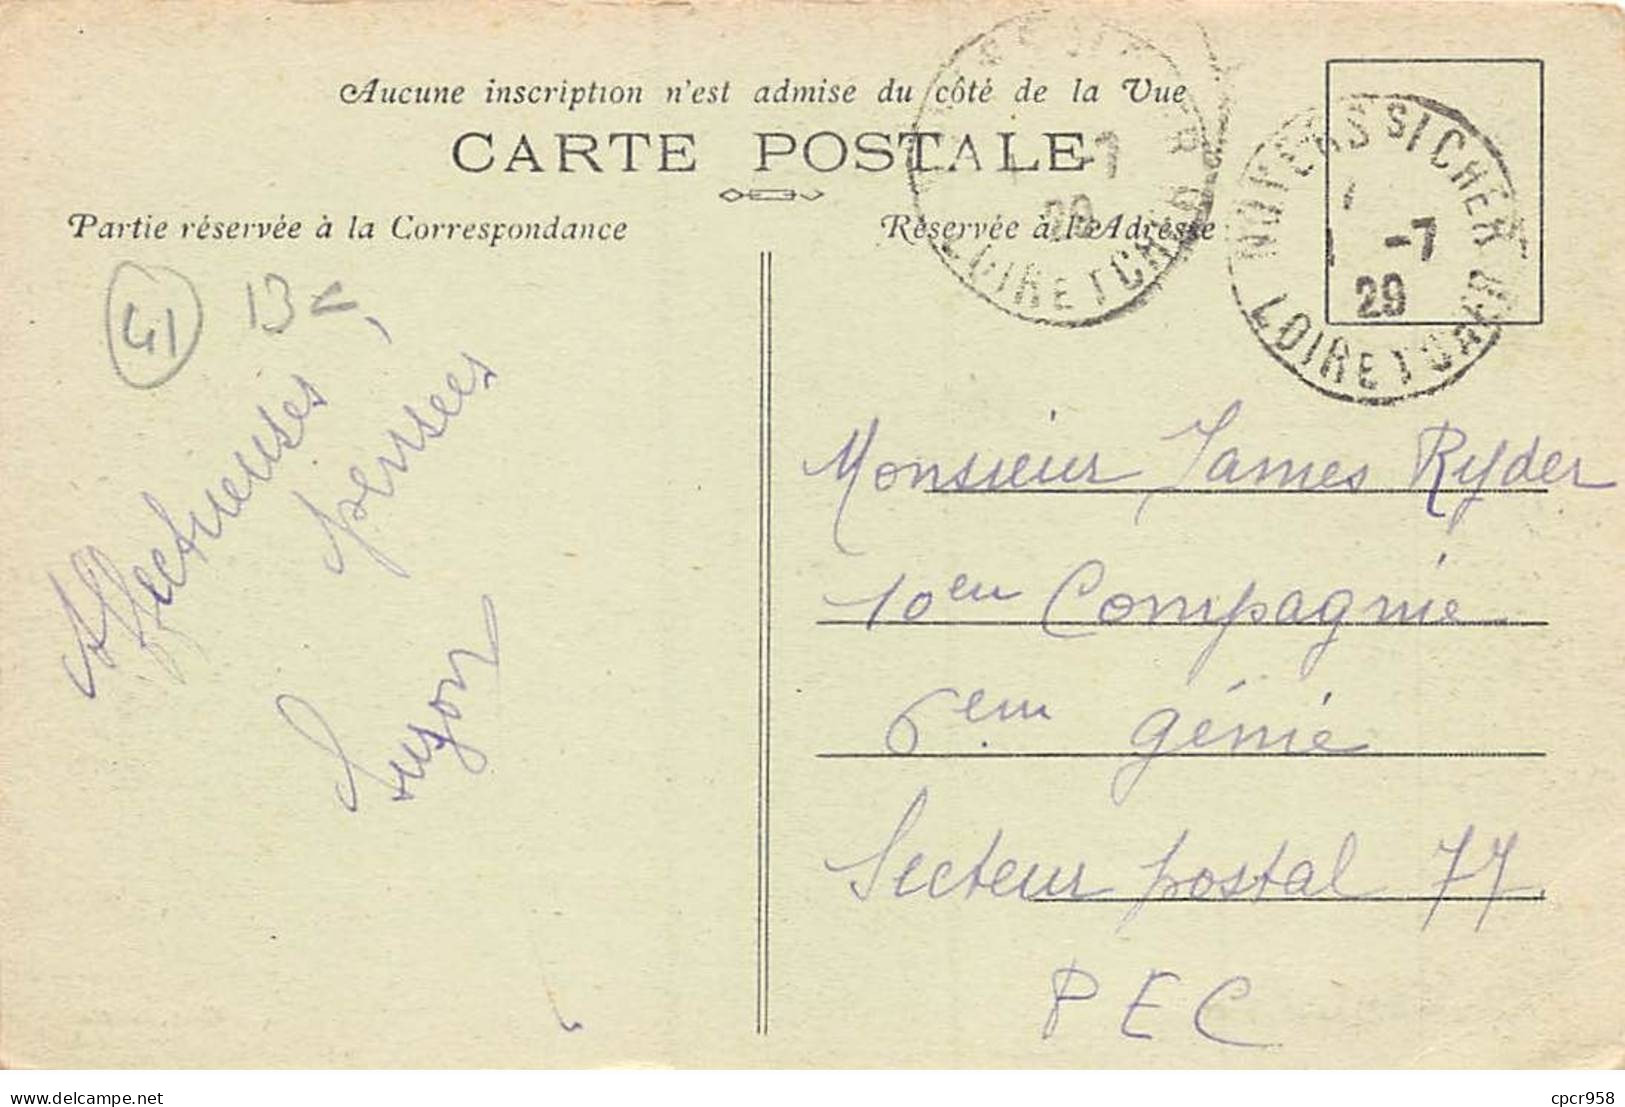 Aucune inscription n'est admise du côté de la Vue
CARTE POSTALE
Partie réservée à la Correspondance
Réservée à l'Adresse
NOYERS S/CHER
-7
29
LOIR ET CHER
NOYERS S/CHER
-7
29
LOIR ET CHER
41
13
Affectueuses
pensées
Suzon
Monsieur James Ryder
10em Compagnie
6em génie
Secteur postal 77
P E C
Partners-in-collecting.com
cpcr958